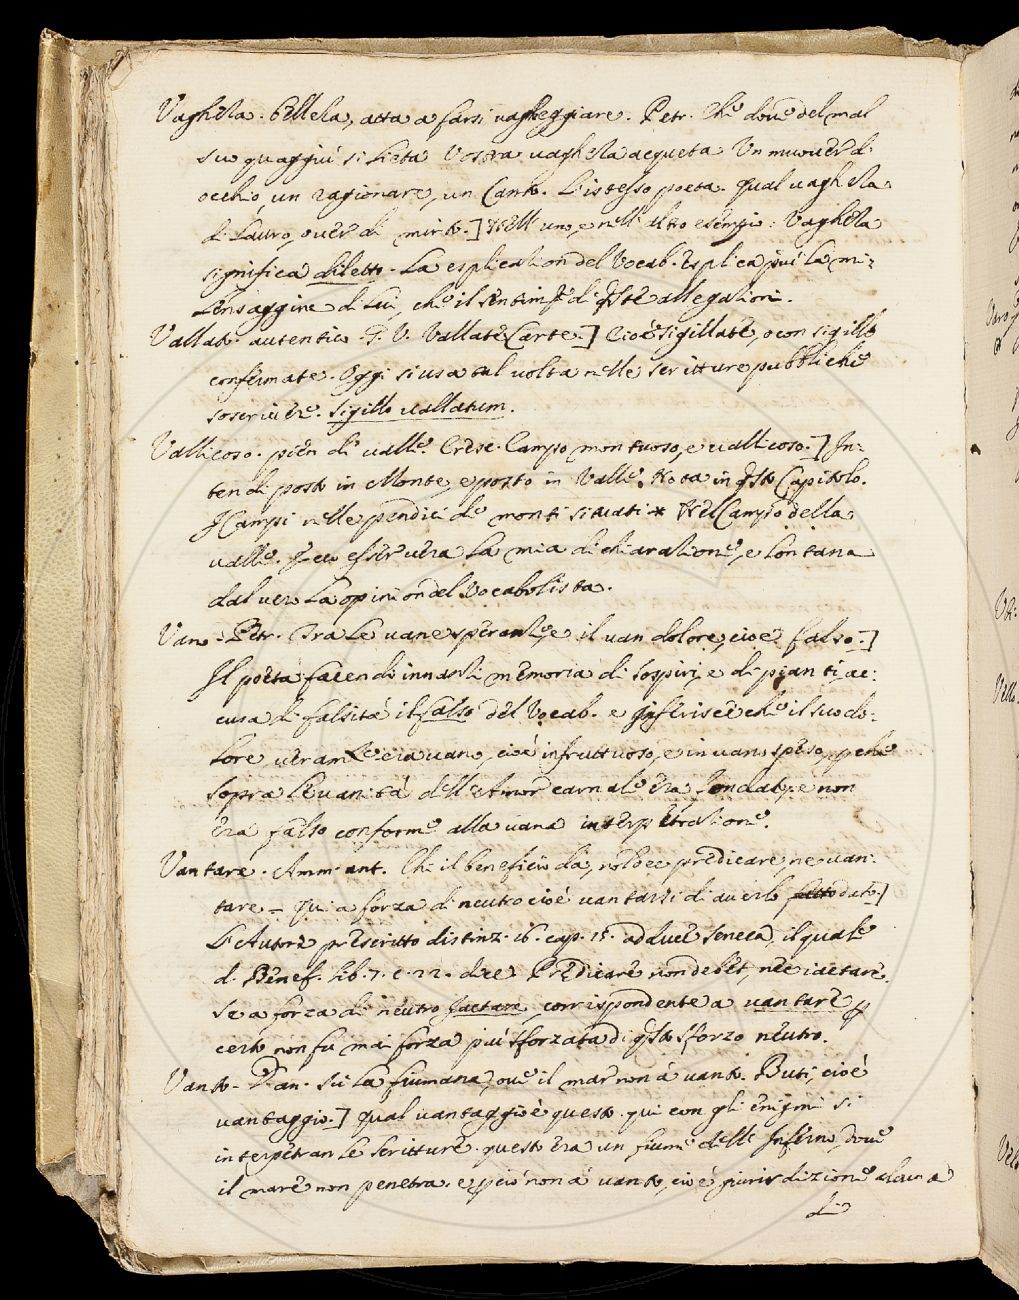 Vagheza. Belleza, atta a farsi vagheggiare. Petr. Che dove del mal
suo quaggiù si lieta Vostra vagheza acqueta Un mover d'
occhio, un ragionare, un Canto. L'istesso poeta. Qual vagheza
di Lauro, over di mirto.] Nell'uno, e nell'altro esempio: Vagheza
significa diletto. La esplication del Vocab. esplica più la mi-
lensaggine di Lui, che il sentimto di qste allegationi.
Vallato. autentico. G. V. Vallate Carte.] Cioè sigillate, o con sigillo
confermate. Oggi si usa tal volta nelle scritture pubbliche
soscrivere. sigillo vallatum.
Vallicoso. pien di valle. Cresc. Campo montuoso, e vallicoso.] In-
tendi posto in Monte, e posto in Valle. Nota in qsto Capitolo.
I Campi nelle pendici de monti situati * Nel Campo della
valle. Ecco esser vera la mia dichiaratione, e lontana
dal vero la opinion del Vocabolista.
Vano. Petr. Fra le vane speranze, e il van dolore, cioè falso.]
Il poeta facendo innanzi memoria di sospiri, e di pianti, ac-
cusa di falsità il falso del Vocab. e inferisce che il suo do-
lore veramte era vano, cioè infruttuoso, e in vano speso, pche
sopra le vanità dell'Amor carnale era fondato, e non
era falso conforme alla vana interpetratione.
Vantare. Amm. ant. Chi il beneficio dà, nol dee predicare, ne van-
tare = Qui a forza di neutro cioè vantarsi di averlo fatto dato.]
L'Autore prescritto distinz. 16. cap. 15. adduce Seneca, il quale
d. Benef. Lib. 7. c. 22. dice Predicare non debet, nec iactare.
Se a forza di neutro Jactare, corrispondente a vantare, p
certo non fu mai forza più sforzata di qsto sforzo neutro.
Vanto. Dan. sù la fiumana, ove il mar non à vanto. Buti, cioè
vantaggio.] Qual vantaggio è questo. qui con gli enigmi si
interpetran le scritture. questo era un fiume dell'Inferno, dove
il mare non penetra. e pciò non à vanto, cioè giurisdizione alcuna
di